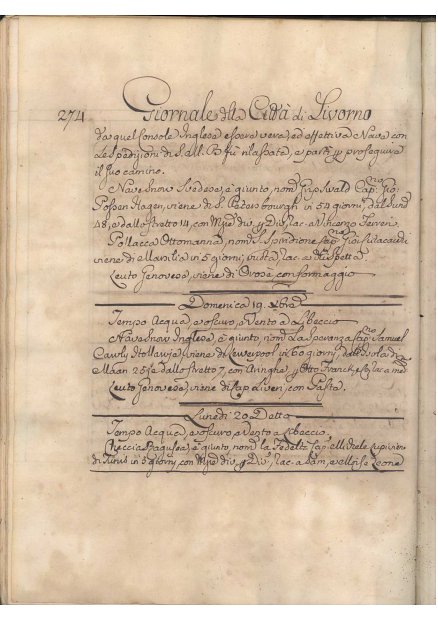 274 Giornale della Città di Livorno
da quel Console Inglese essere vera, ed effettiva Nave con
le Spedizioni di S. fù rilasciata, e partì p proseguire
il suo camino.
Nave Snow Svedese, è giunto, nom Gripswald Cap. Gio:
Possen Hagen, viene di S. Petersbourgh in 54 giorni, dal Sund
48, e dallo Stretto 14, con Mzie div, p Div, rac. a Vincenzo
Pollacca Ottomanna, nom S. Spiridione Cap. Gio:
viene di Marsilia in 5 giorni, rac. a Rispetta
Leuto Genovese, viene di con formaggio
Domenica 19. Xbre
Tempo Acqua, e oscuro, e Vento a Libeccio
Nave Snow Inglese, è giunto, nom La Speranza Cap. Samuel
viene di Liwerpool in 60 giorni, dall'Isola di
Maan 25, e dallo Stretto 7, con Aringhe, p Otto Franck, e
Leuto Genovese, viene di Cap. Liveri, con Pasta.
Lunedì 20. Detto
Tempo Acqua, e oscuro, e Vento a Libeccio
Raguseo, è giunto, nom la Fedeltà Cap. Michele
di Tunis in 5 giorni, con Mzie div, p Div, rac. a Sam, e Moisè Leone